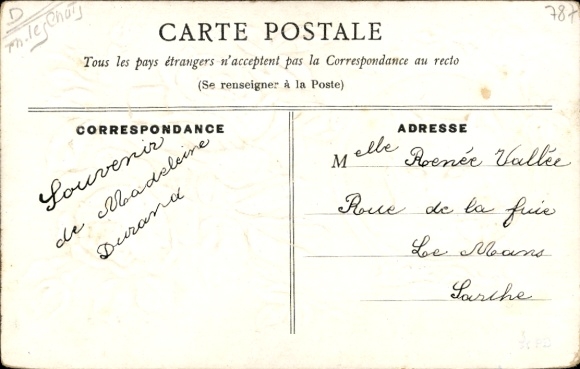 D
CARTE POSTALE
Tous les pays étrangers n'acceptent pas la Correspondance au recto
(Se renseigner à la Poste)
CORRESPONDANCE
Souvenir
de Madeleine
Durand
ADRESSE
Melle Renée Vallée
Rue de la fuie
Le Mans
Sarthe